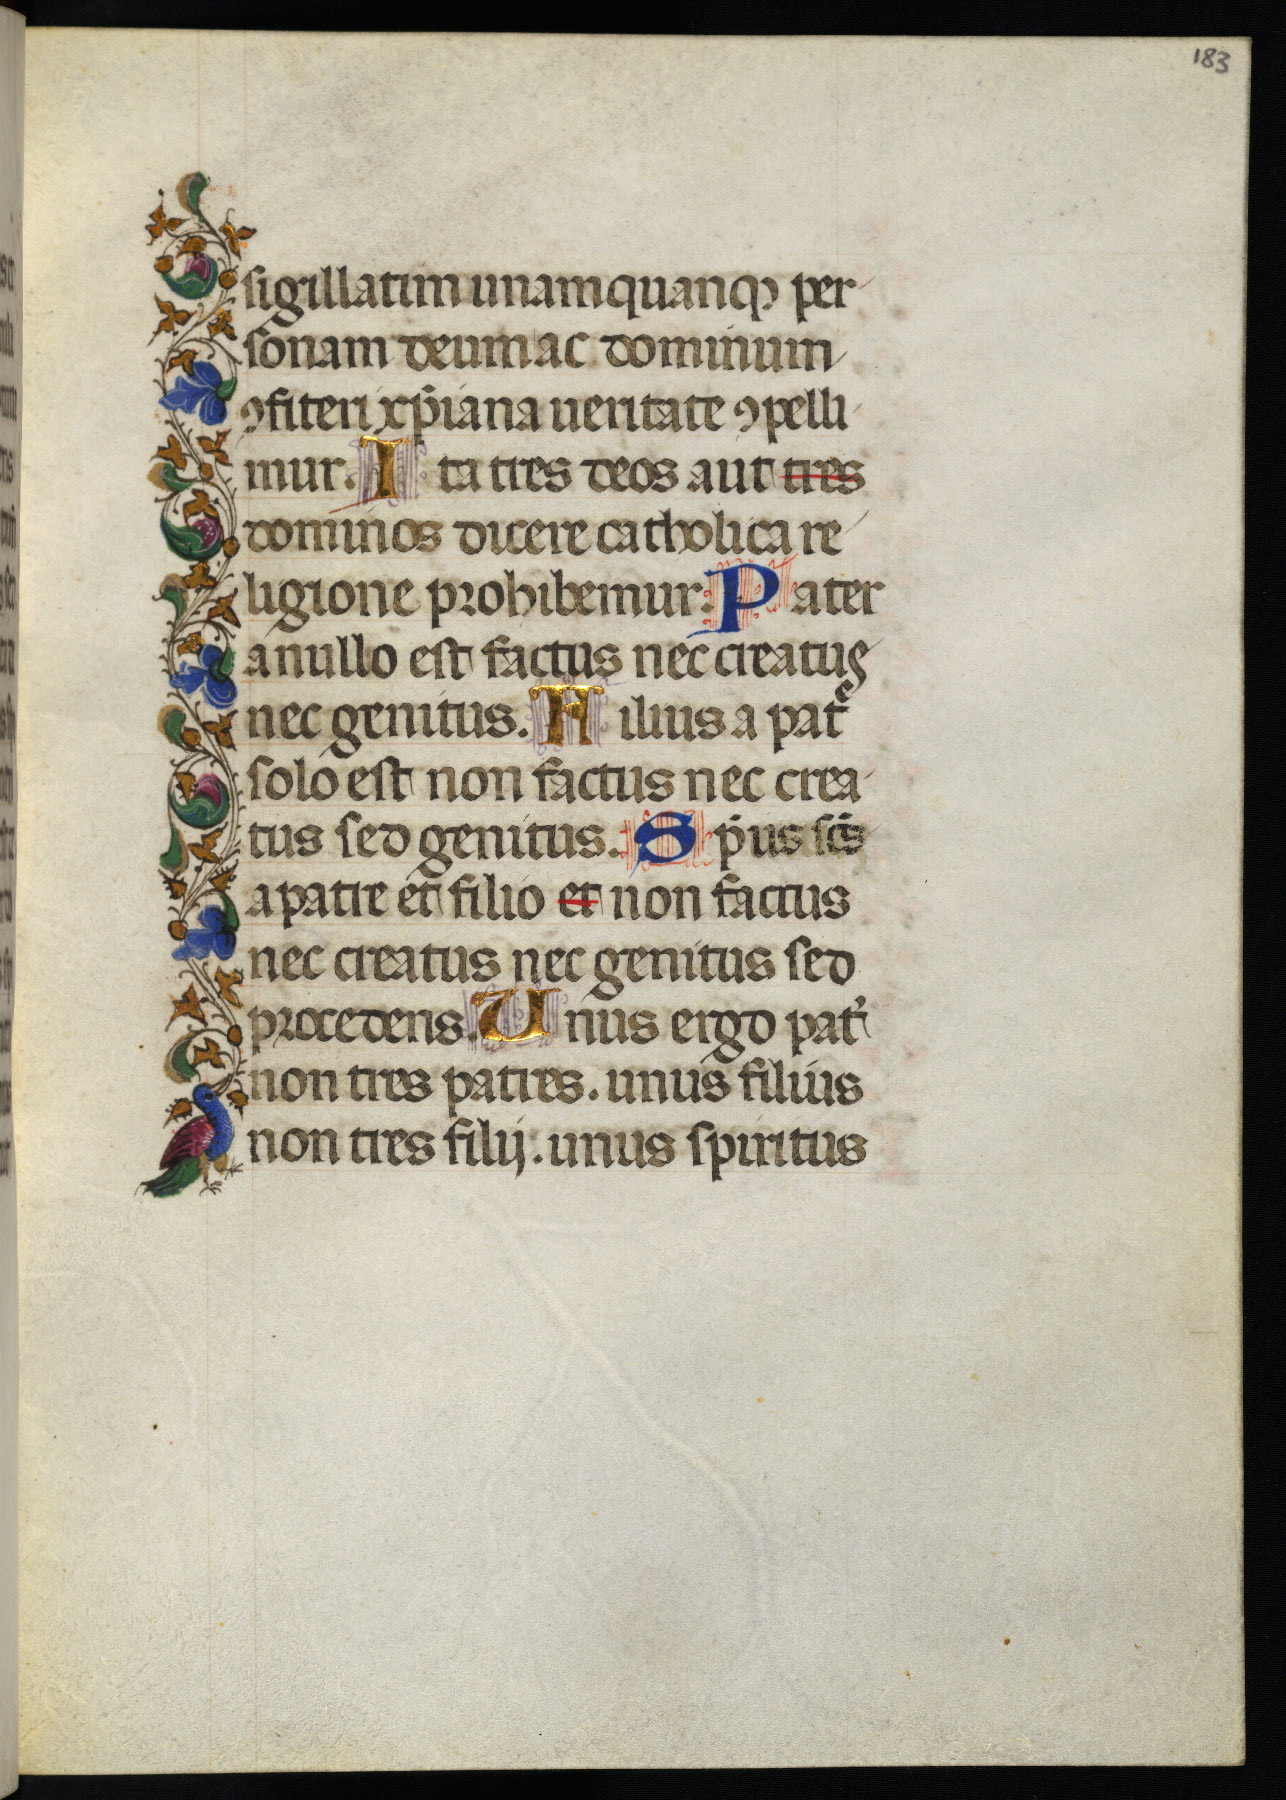 183
sigillatim unamquanqꝫ per
sonam deum ac dominum
ꝯfiteri xp̄iana ueritate ꝯpelli
mur. Ita tres deos aut tres
dominos dicere catholica re
ligione prohibemur. Pater
a nullo est factus nec creatus
nec genitus. Filius a patᵉ
solo est non factus nec crea
tus sed genitus. Sp̄us sc̄s
a patre et filio et non factus
nec creatus nec genitus sed
procedens. Unus ergo pat̾
non tres patres. unus filius
non tres filij. unus spiritus